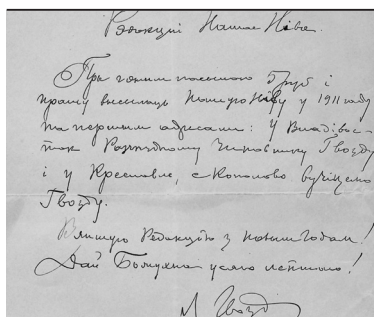 Рэдакціи Нашае Нівы.
При гэтым посылаю 5 руб і
прашу высылаць Нашую Ніву у 1911 году
па першым адресам: у Владівос-
ток Разъѣздному Чиновнику Гвозду
і у Креславле, с Кополово вучіцелю
Гвозду.
Віншую Рэдакцыю з новым Годам!
Дай Божухна усяго лепшаго!
Гвозд